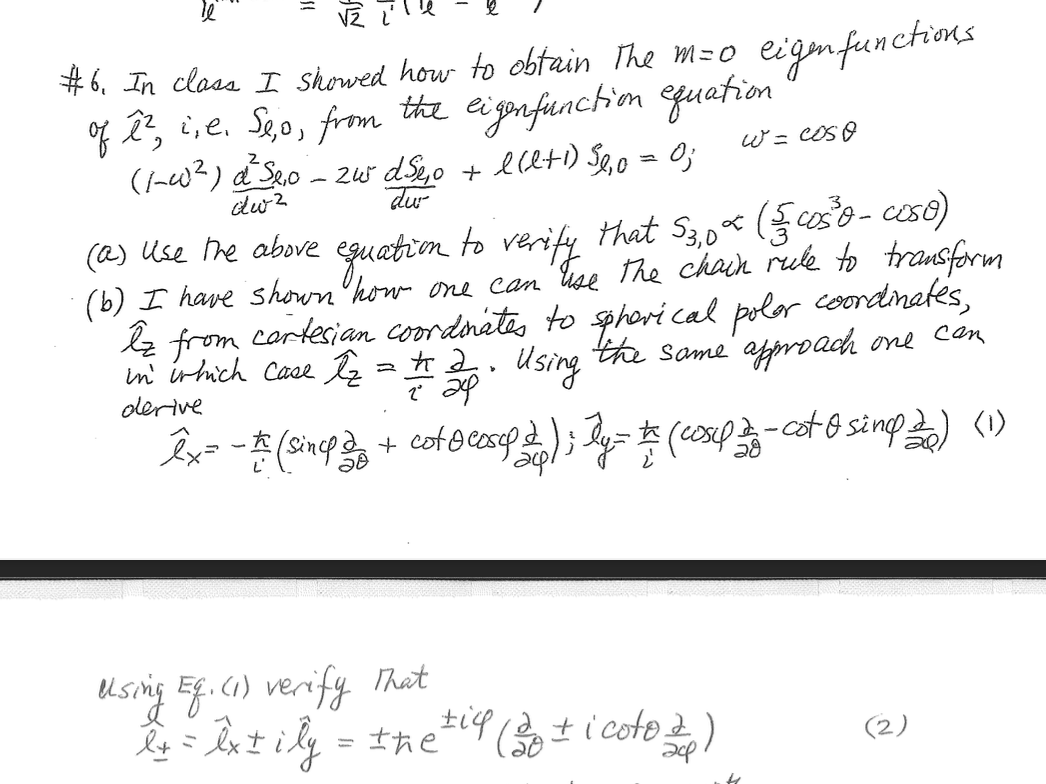 #6. In class I showed how to obtain The m=0 eigenfunctions
of l̂², i.e. Sℓ,0, from the eigenfunction equation
(1-w²) d²Sℓ,0/dw² - 2w dSℓ,0/dw + ℓ(ℓ+1) Sℓ,0 = 0; w = cosθ
(a) Use The above equation to verify that S3,0 ∝ (5/3 cos³θ - cosθ)
(b) I have shown how one can use The chain rule to transform
l̂z from cartesian coordinates to spherical polar coordinates,
in which case l̂z = ħ/i ∂/∂φ. Using the same approach one can
derive
l̂x = -ħ/i (sinφ ∂/∂θ + cotθ cosφ ∂/∂φ); l̂y = ħ/i (cosφ ∂/∂θ - cotθ sinφ ∂/∂φ) (1)
Using Eq. (1) verify That
l̂± = l̂x ± i l̂y = ±ħe^±iφ (∂/∂θ ± i cotθ ∂/∂φ) (2)